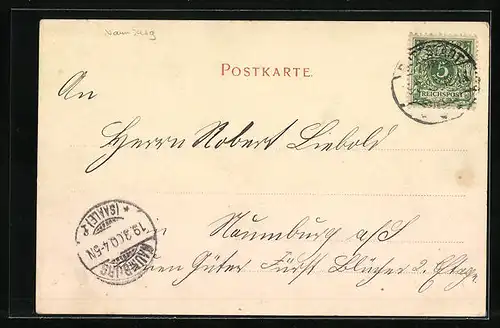 Naumburg
POSTKARTE.
5
REICHSPOST
An
Herrn Robert Liebold
in
Naumburg a/S
Guter Fürst Blücher 2. Etage
NAUMBURG
19.3.00.4-5N
*(SAALE)*